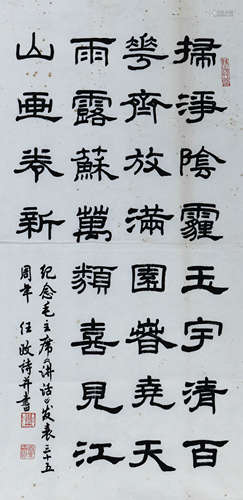 掃淨陰霾玉宇清百
華齊放滿園春堯天
雨露蘇萬類喜見江
山画卷新
纪念毛主席《讲话》发表三十五
周年 任政诗并書